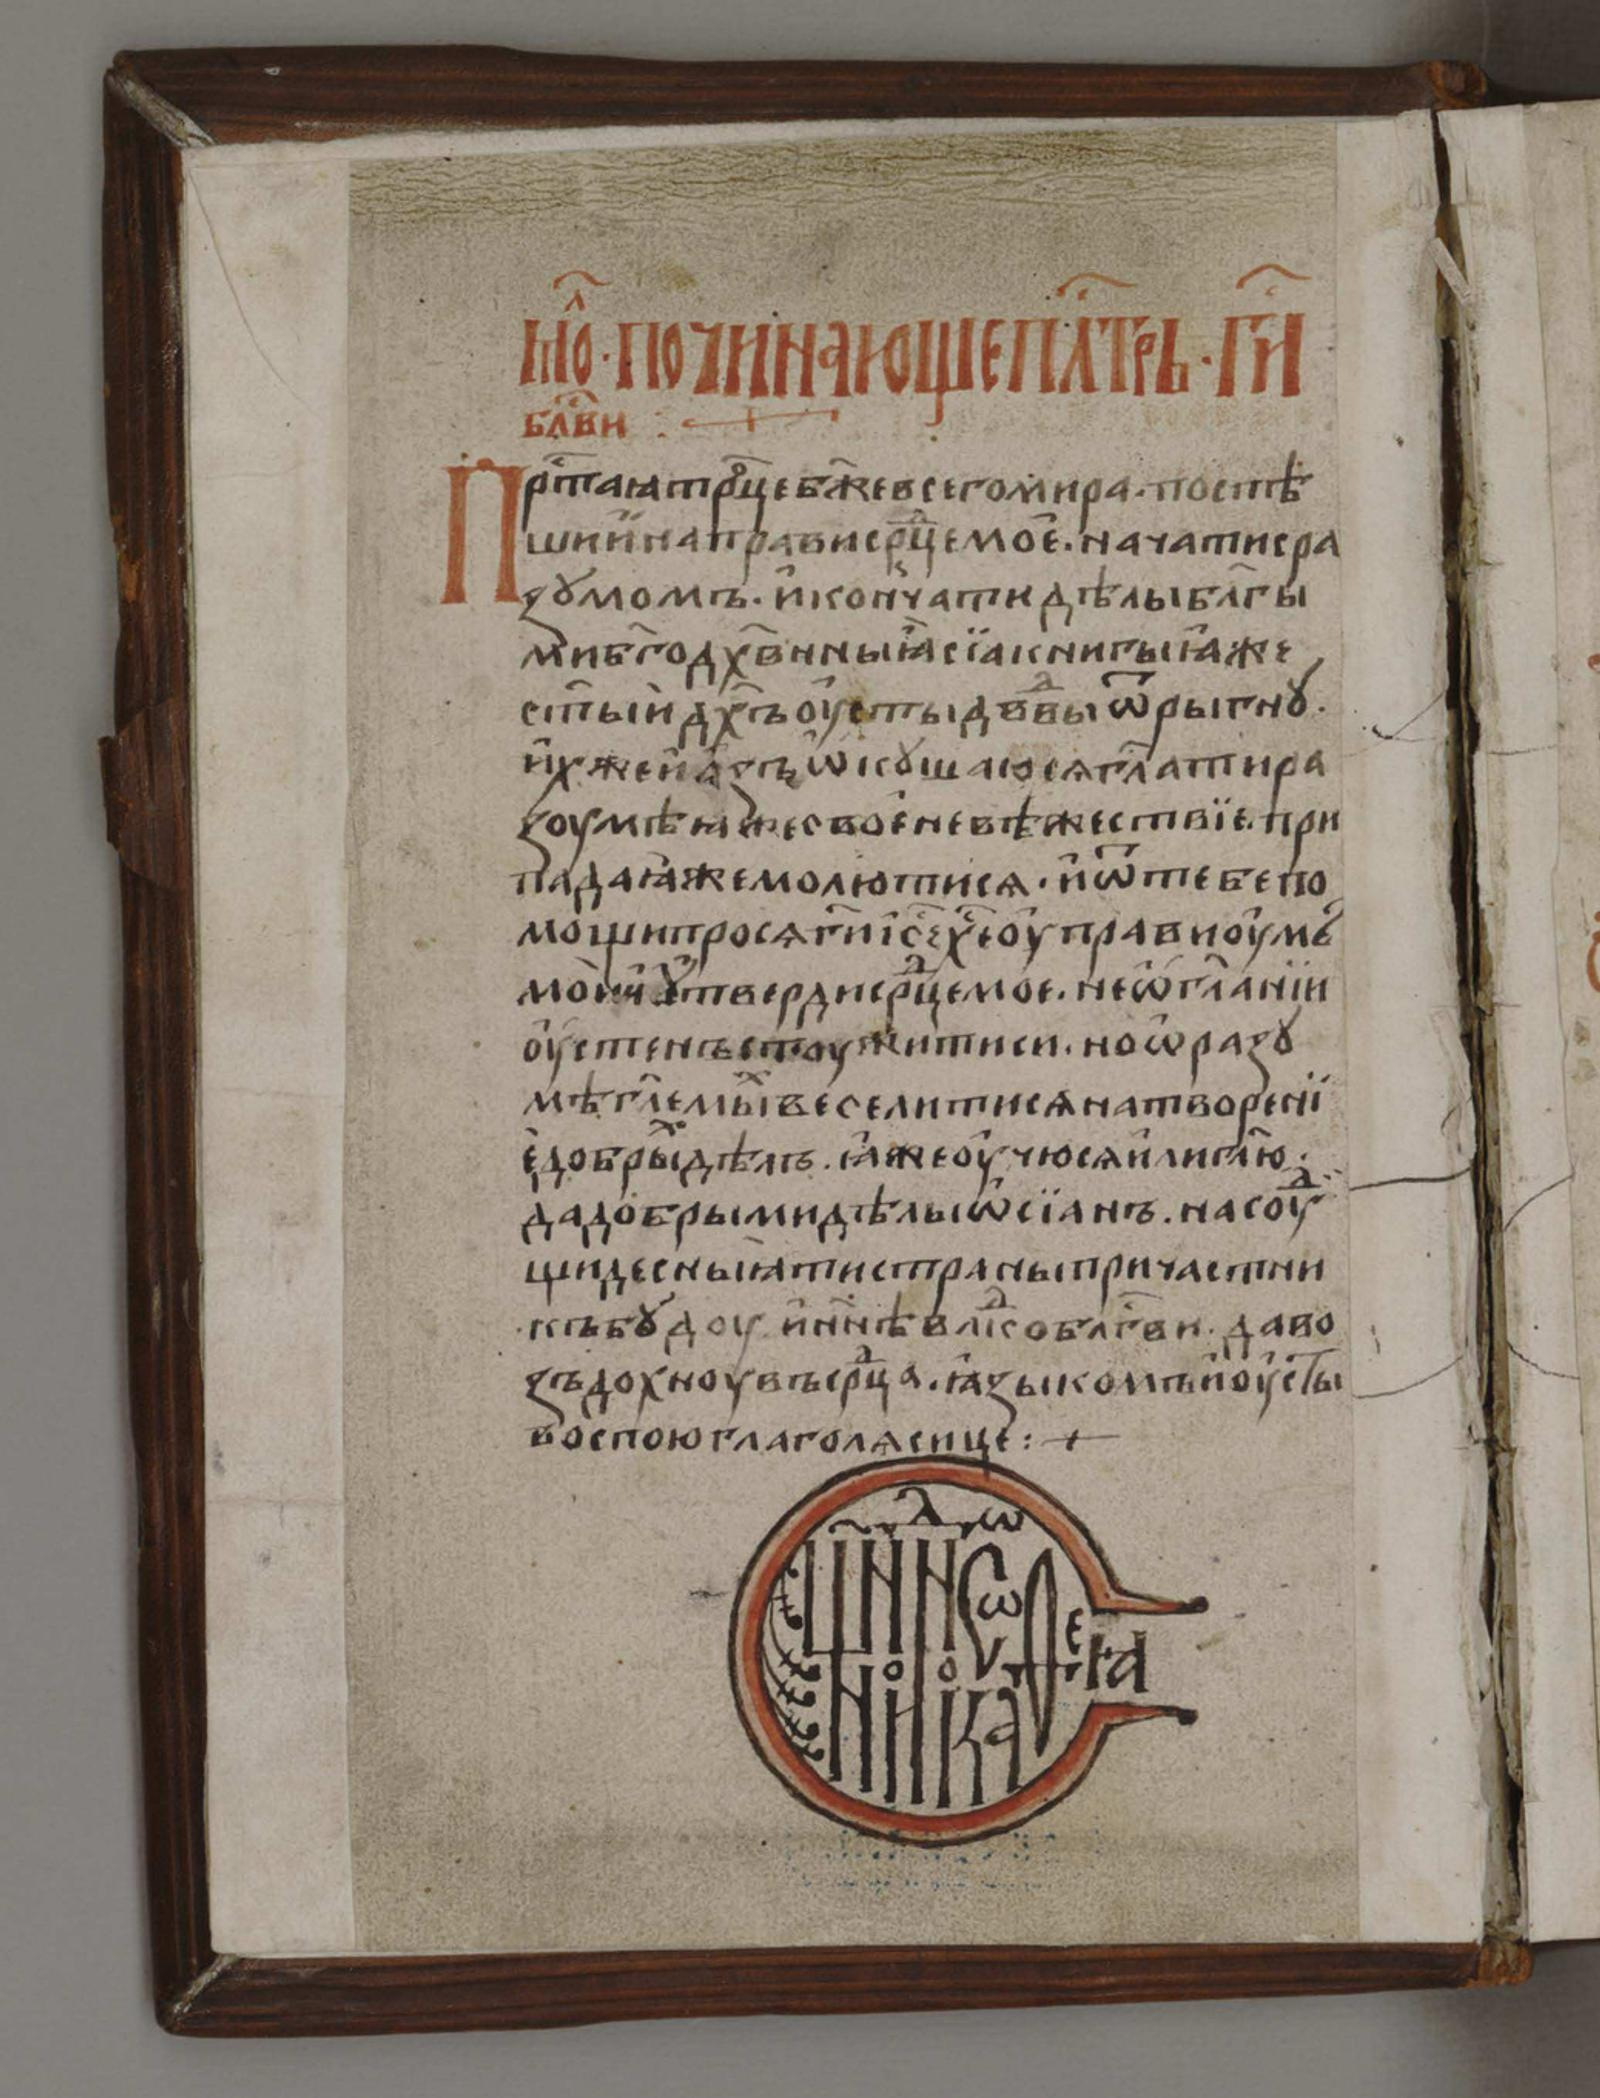 мл҃о · починающе пл҃тръ · гн҃и
бл҃ви :
Прст҃аꙗ трⷪ҇це бж҃е всего мира · поспѣ
шии и направи срⷣце мое · начати с ра
зꙋмомъ · и кончати дѣлы бл҃гы
ми бг҃одх҃внныꙗ сїа книгы ꙗже
ст҃ый дх҃ъ оусты дв҃двы ѿрыгнꙋ ·
ихже и азъ ѡкꙋшаюсѧ гл҃ати ра
зоумѣꙗ же свое невѣжествїе · при
падаꙗ же молютисѧ · и ѿ тебе по
мощи просѧ гн҃и іс҃е хс҃е оуправи оумъ
мои и ꙋтверди срⷣце мое · не ѡ гл҃анїи
оустенъ стоужитиси · но ѡ разꙋ
мѣ гл҃емыⷯ веселитисѧ на творенї
е добрыⷯ дѣлъ · ꙗже оучюсѧ и ли гл҃ю ·
да добрыми дѣлы ѡсїанъ · на соуⷣ
щи десныꙗ ти страны причастни
къ бꙋдоу и нн҃ѣ влⷣко бл҃гви · да во
здохноу въ срⷣца · ꙗзыкомъ и оусты
воспою глаголѧ сице :